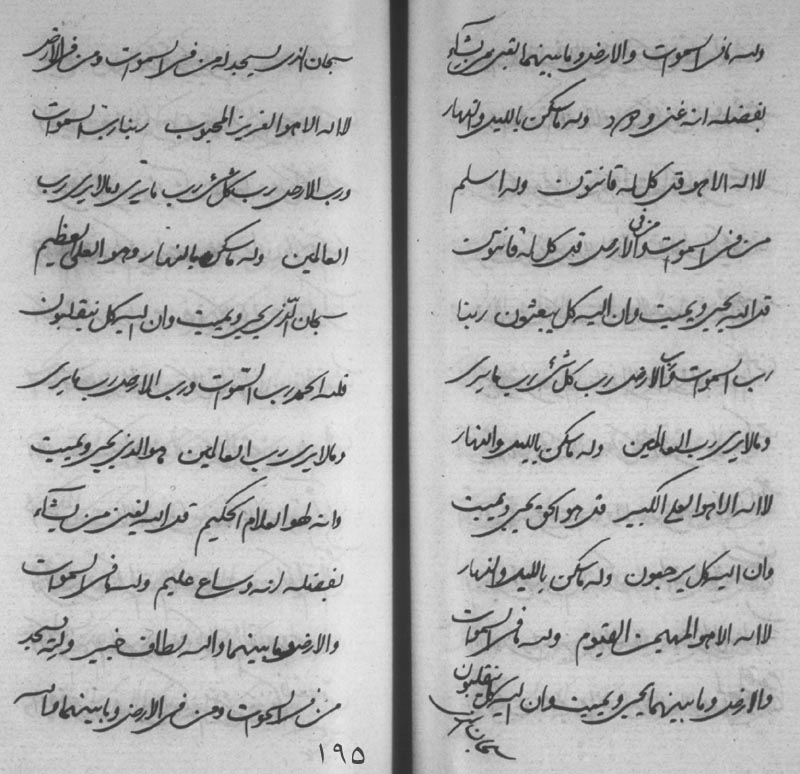 ولله ما في السموات والارض وما بينهما يغني من يشآء
بفضله انه غني ودود وله ما سكن بالليل والنهار
لا اله الا هو قل كل له قانتون وله اسلم
من في السموات ومن في الارض قل كل له قانتون
قل الله يحيي ويميت وان اليه كل يبعثون ربنا
رب السموات ورب الارض رب كل شئ رب ما يرى
وما لا يرى رب العالمين وله ما سكن بالليل والنهار
لا اله الا هو العلي الكبير قل هو الحق يحيي ويميت
وان اليه كل يرجعون وله ما سكن بالليل والنهار
لا اله الا هو المهيمن القيوم ولله ما في السموات
والارض وما بينهما يحيي ويميت وان اليه كل ينقلبون
سبحان الذي
سبحان الذي يسجد له من في السموات ومن في الارض
لا اله الا هو العزيز المحبوب ربنا رب السموات
ورب الارض رب كل شئ رب ما يرى وما لا يرى رب
العالمين وله ما سكن بالنهار وهو العلي العظيم
سبحان الذي يحيي ويميت وان اليه كل ينقلبون
فلله الحمد رب السموات ورب الارض رب ما يرى
وما لا يرى رب العالمين هو الذي يحيي ويميت
وانه لهو العلام الحكيم قل الله يغني من يشآء
بفضله انه وساع عليم ولله ما في السموات
والارض وما بينهما والله لطاف خبير ولله يسجد
من في السموات ومن في الارض وما بينهما والله
١٩٥